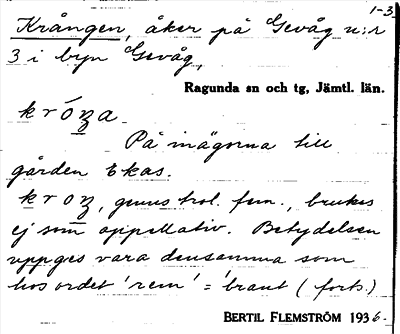 1-3
Krången, åker på Gevåg n:r
3 i byn Gevåg,
Ragunda sn och tg, Jämtl. län.
króŋa
På inägorna till
gården Ekas.
kroŋ, genus trol. fem., brukes
ej som appellativ. Betydelsen
uppges vara densamma som
hos ordet 'rem' = 'brant (forts.)
BERTIL FLEMSTRÖM 1936.